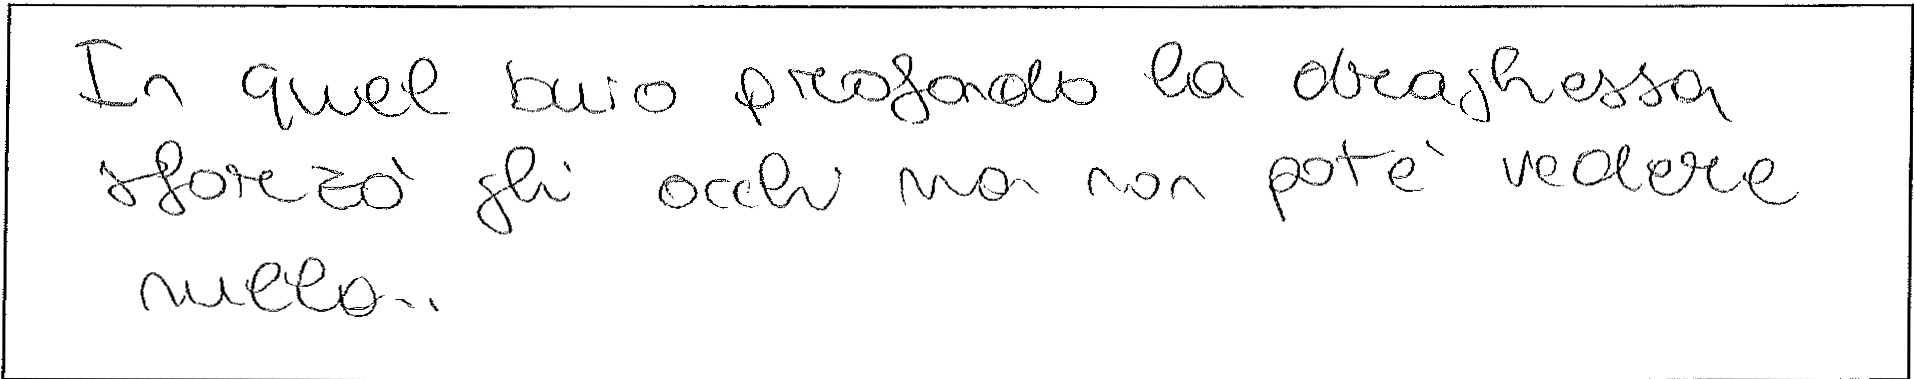 In quel buio profondo la draghessa
sforzò gli occhi ma non poté vedere
nulla..